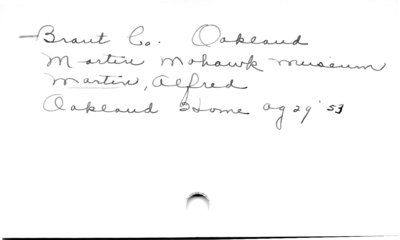 Brant Co. Oakland
Martin Mohawk Museum
Martin, Alfred
Oakland Home ag 29 '53